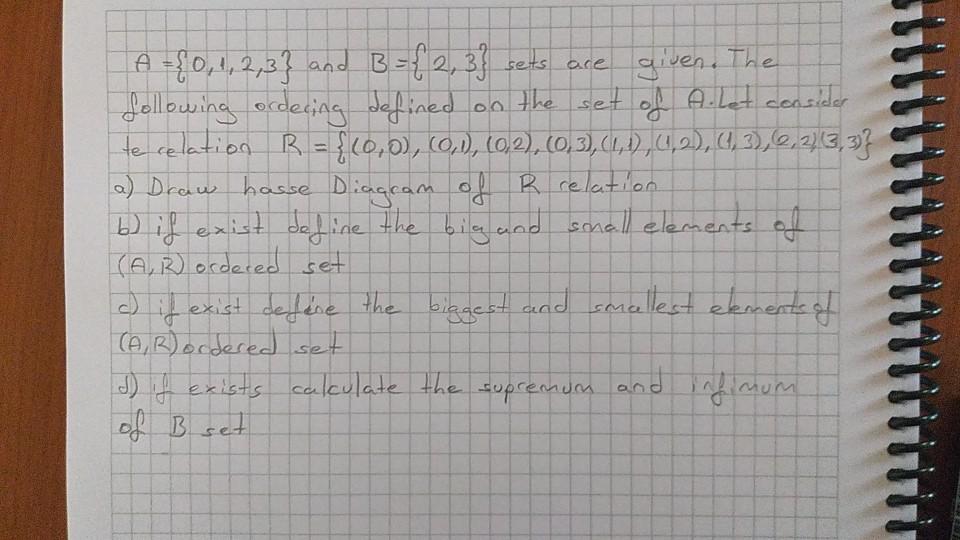 A = {0,1,2,3} and B = {2,3} sets are given. The
following ordering defined on the set of A. Let consider
te relation R = {(0,0), (0,1), (0,2), (0,3), (1,1), (1,2), (1,3), (2,2)(3,3)}
a) Draw hasse Diagram of R relation
b) if exist define the big and small elements of
(A,R) ordered set
c) if exist define the biggest and smallest elements of
(A,R) ordered set
d) if exists calculate the supremum and infimum
of B set